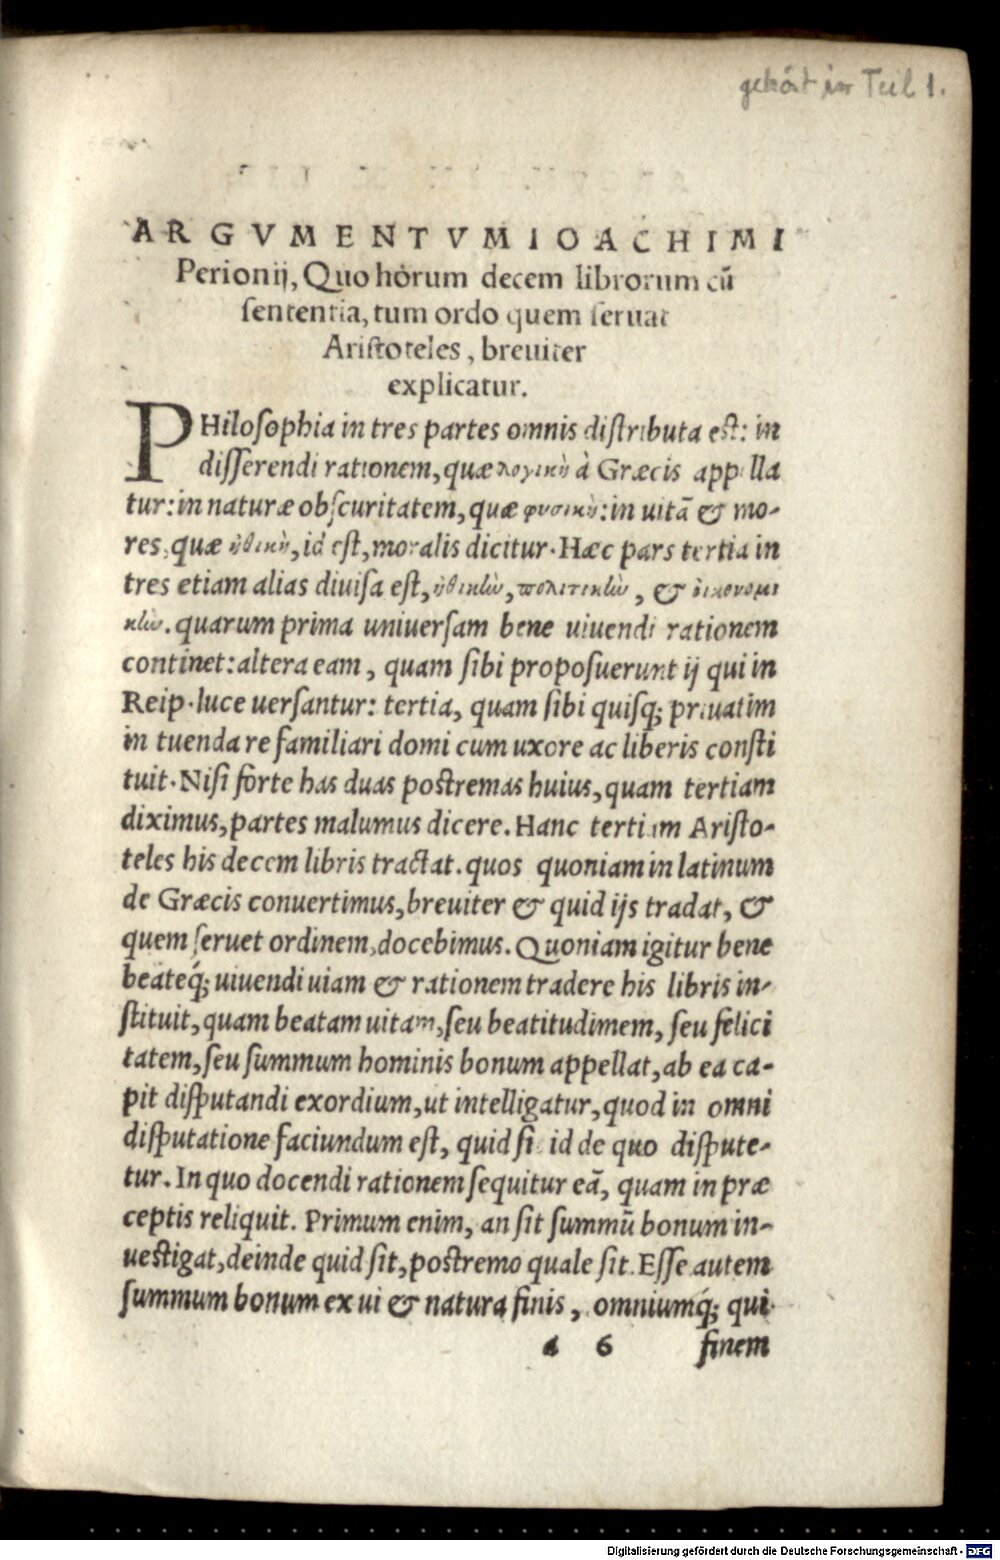 gehört in Teil 1.
ARGVMENTVM IOACHIMI
Perionij, Quo horum decem librorum cū
sententia, tum ordo quem seruat
Aristoteles, breuiter
explicatur.
PHilosophia in tres partes omnis distributa est: in
disserendi rationem, quæ λογικὴ à Græcis appella
tur: in naturæ obscuritatem, quæ φυσικὴ: in uitã & mo-
res, quæ ἠθικὴ, id est, moralis dicitur. Hæc pars tertia in
tres etiam alias diuisa est, ἠθικὴν, πολιτικὴν, & οἰκονομι
κὴν. quarum prima uniuersam bene uiuendi rationem
continet: altera eam, quam sibi proposuerunt ij qui in
Reip. luce uersantur: tertia, quam sibi quisq; priuatim
in tuenda re familiari domi cum uxore ac liberis consti
tuit. Nisi forte has duas postremas huius, quam tertiam
diximus, partes malumus dicere. Hanc tertiam Aristo-
teles his decem libris tractat. quos quoniam in latinum
de Græcis conuertimus, breuiter & quid ijs tradat, &
quem seruet ordinem, docebimus. Quoniam igitur bene
beateq́; uiuendi uiam & rationem tradere his libris in-
stituit, quam beatam uitam, seu beatitudimem, seu felici
tatem, seu summum hominis bonum appellat, ab ea ca-
pit disputandi exordium, ut intelligatur, quod in omni
disputatione faciundum est, quid sit id de quo dispute-
tur. In quo docendi rationem sequitur eã, quam in præ
ceptis reliquit. Primum enim, an sit summū bonum in-
uestigat, deinde quid sit, postremo quale sit. Esse autem
summum bonum ex ui & natura finis, omniumq́; qui
a 6 finem
Digitalisierung gefördert durch die Deutsche Forschungsgemeinschaft - DFG